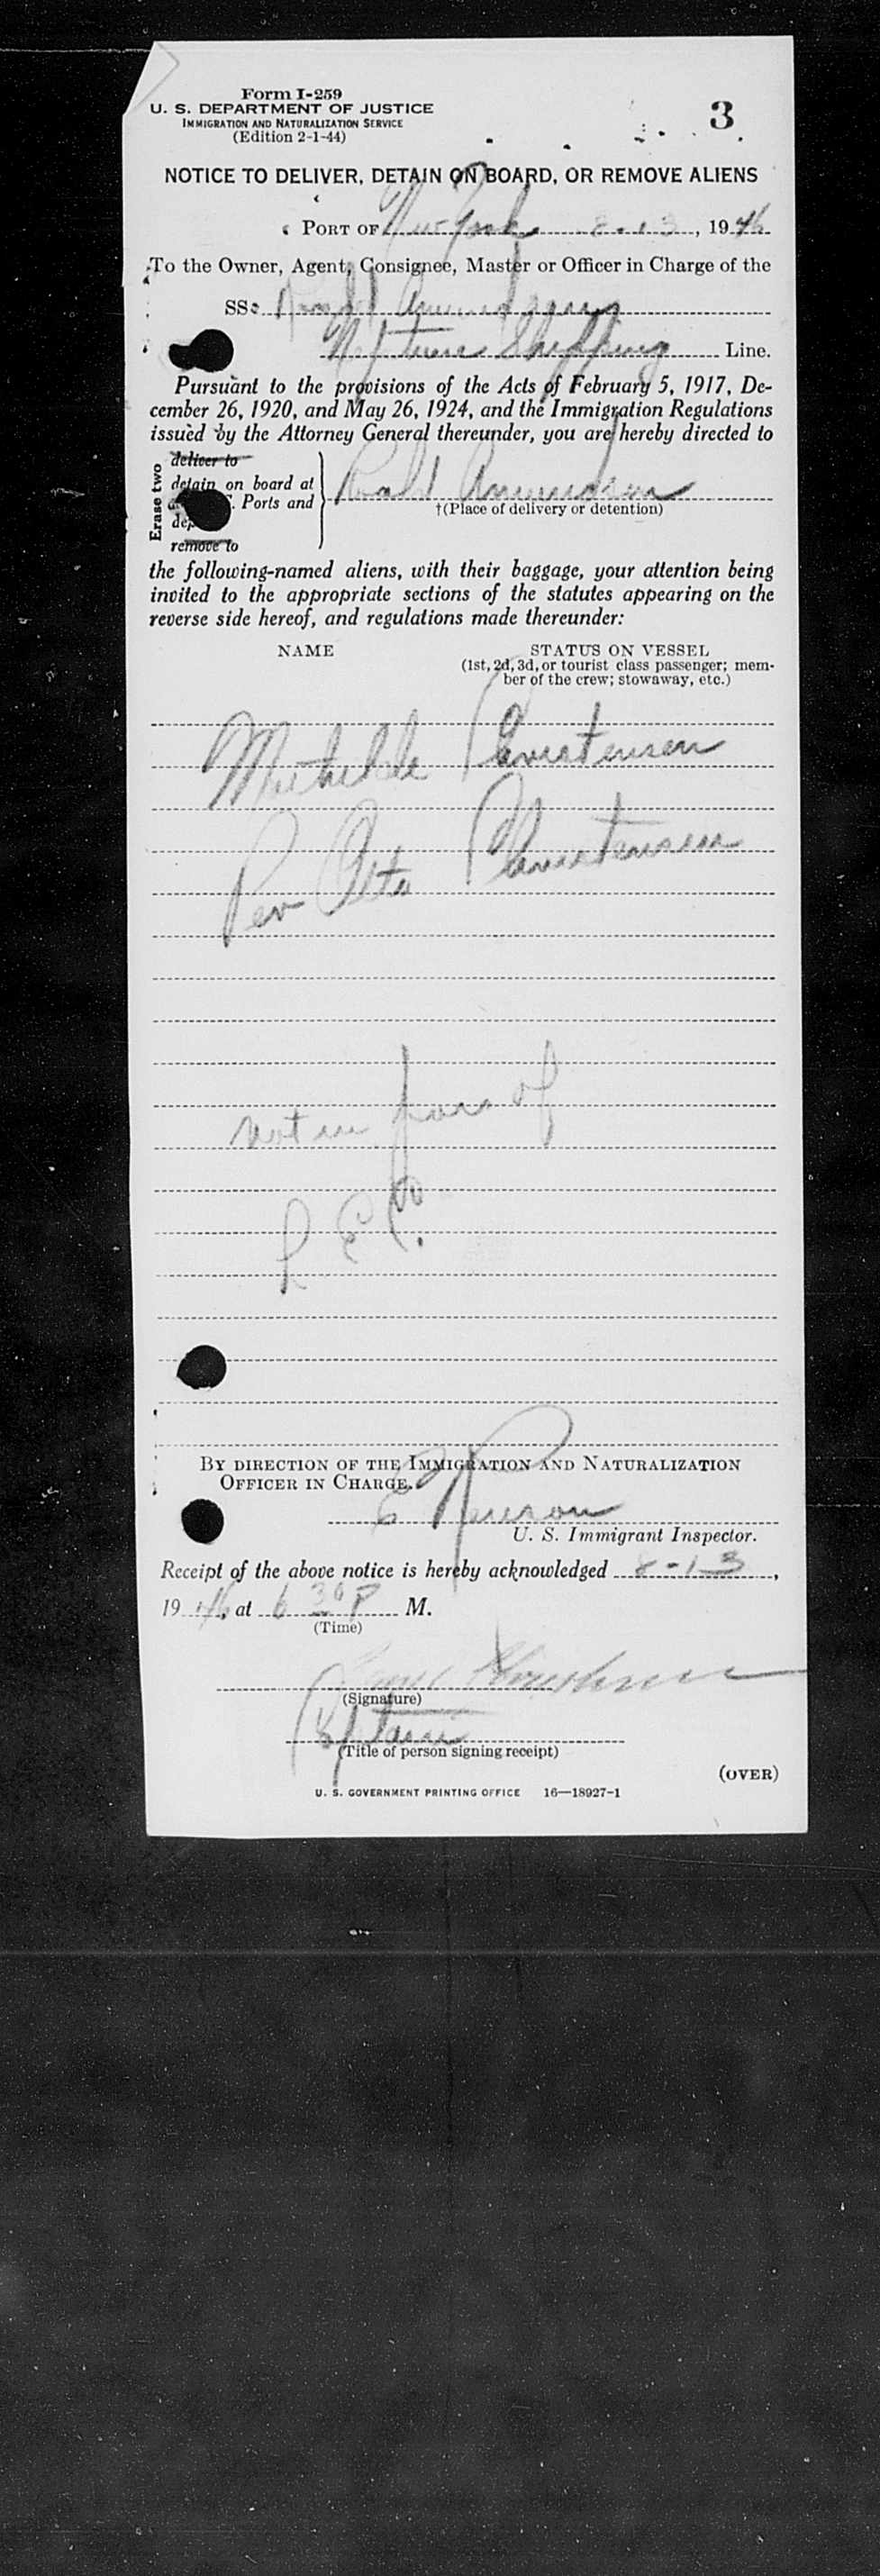 Form I-259
U. S. DEPARTMENT OF JUSTICE
IMMIGRATION AND NATURALIZATION SERVICE
(Edition 2-1-44)
3
NOTICE TO DELIVER, DETAIN ON BOARD, OR REMOVE ALIENS
PORT OF New York 8-13, 1946
To the Owner, Agent, Consignee, Master or Officer in Charge of the
SS: Roald Amundsen
Neptune Shipping Line.
Pursuant to the provisions of the Acts of February 5, 1917, De-
cember 26, 1920, and May 26, 1924, and the Immigration Regulations
issued by the Attorney General thereunder, you are hereby directed to
Erase two
deliver to
detain on board at
Ports and
remove to
Roald Amundsen
†(Place of delivery or detention)
the following-named aliens, with their baggage, your attention being
invited to the appropriate sections of the statutes appearing on the
reverse side hereof, and regulations made thereunder:
NAME STATUS ON VESSEL
(1st, 2d, 3d, or tourist class passenger; mem-
ber of the crew; stowaway, etc.)
Mathilde Christensen
Per Christensen
not in poss of
BY DIRECTION OF THE IMMIGRATION AND NATURALIZATION
OFFICER IN CHARGE.
E
U. S. Immigrant Inspector.
Receipt of the above notice is hereby acknowledged 8-13,
1946, at 6 30 P M.
(Time)
(Signature)
Captain
(Title of person signing receipt)
(OVER)
U. S. GOVERNMENT PRINTING OFFICE 16—18927-1